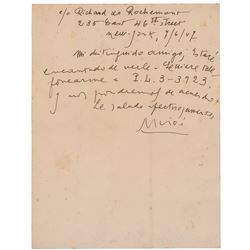 c/o Richard de Rochemont
235 East 46th street
new-york, 9/6/47
Mi distinguido amigo, Estaré
encantado de verle. Quiere tele-
fonearme a P.L.3-3923
y nos pondremos de acuerdo.
Le saluda afectuosamente,
Miró